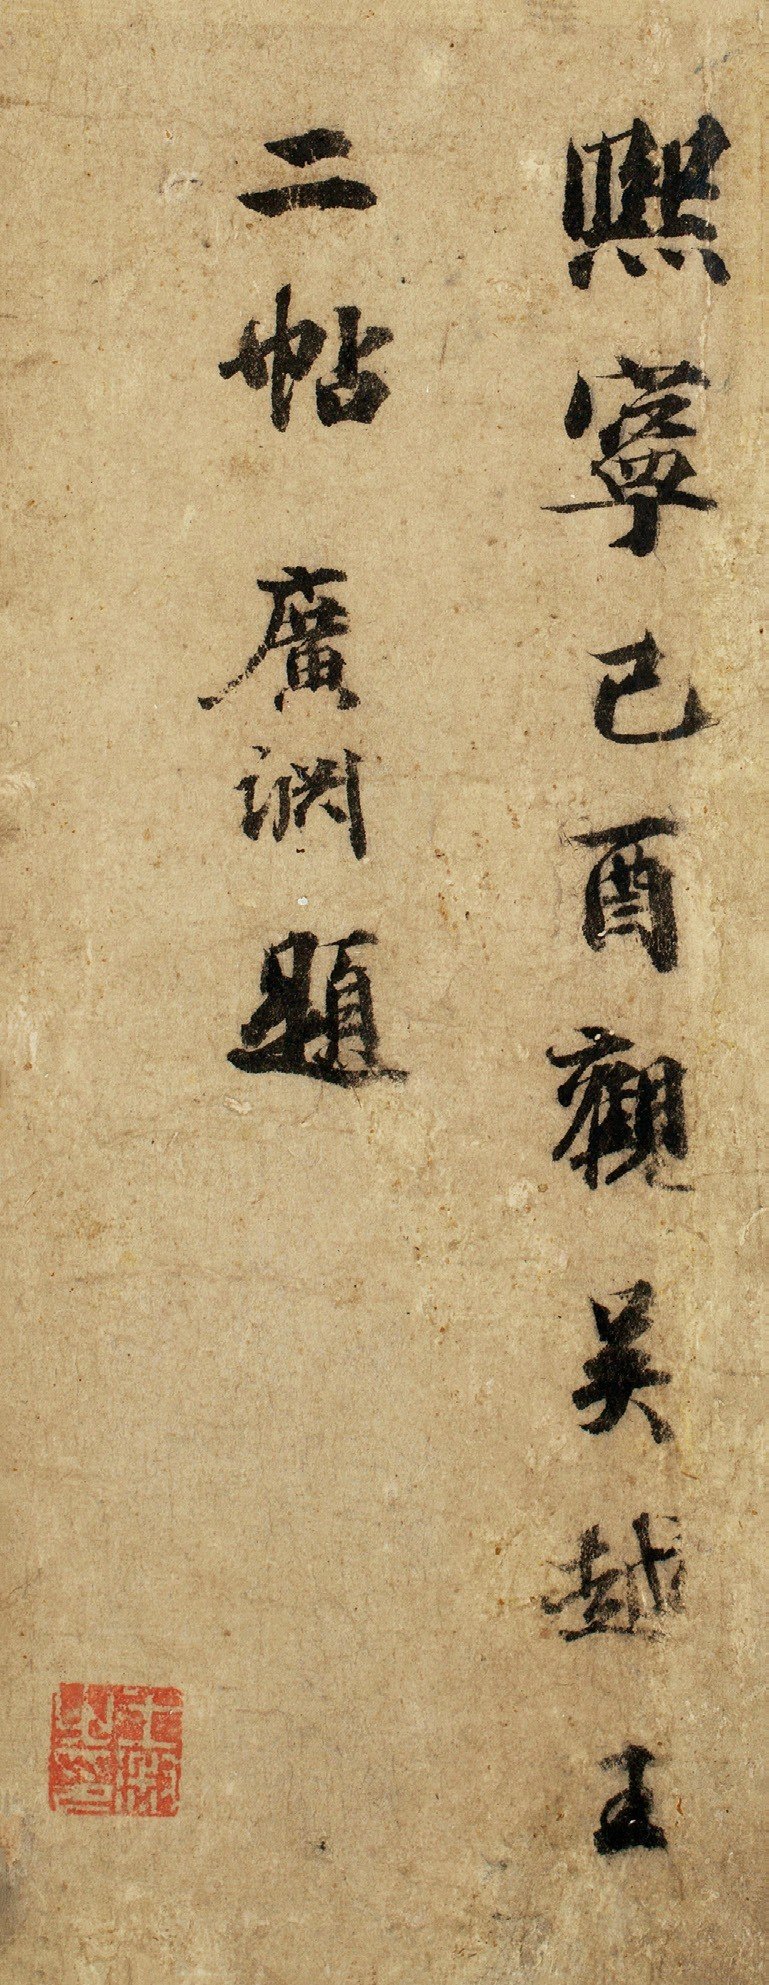 熙寧己酉觀吳越王
二帖廣淵題